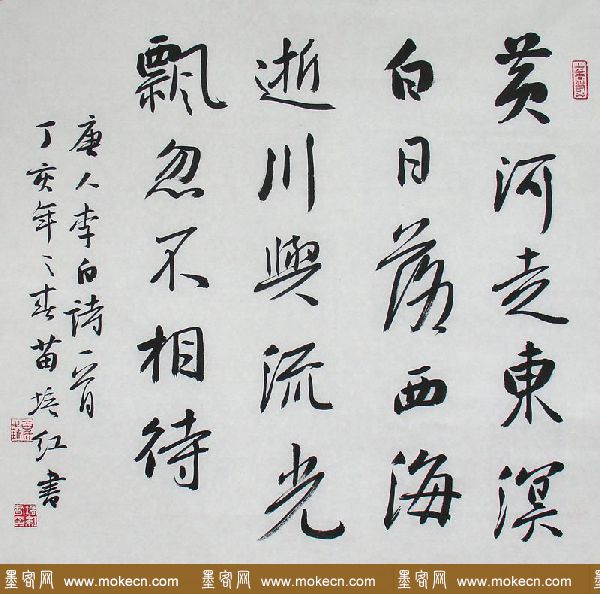 黄河走東溟
白日落西海
逝川與流光
飄忽不相待
唐人李白詩一首
丁亥年之春苗培红書
墨客网 www.mokecn.com 墨客网 www.mokecn.com 墨客网 www.mokecn.com 墨客网